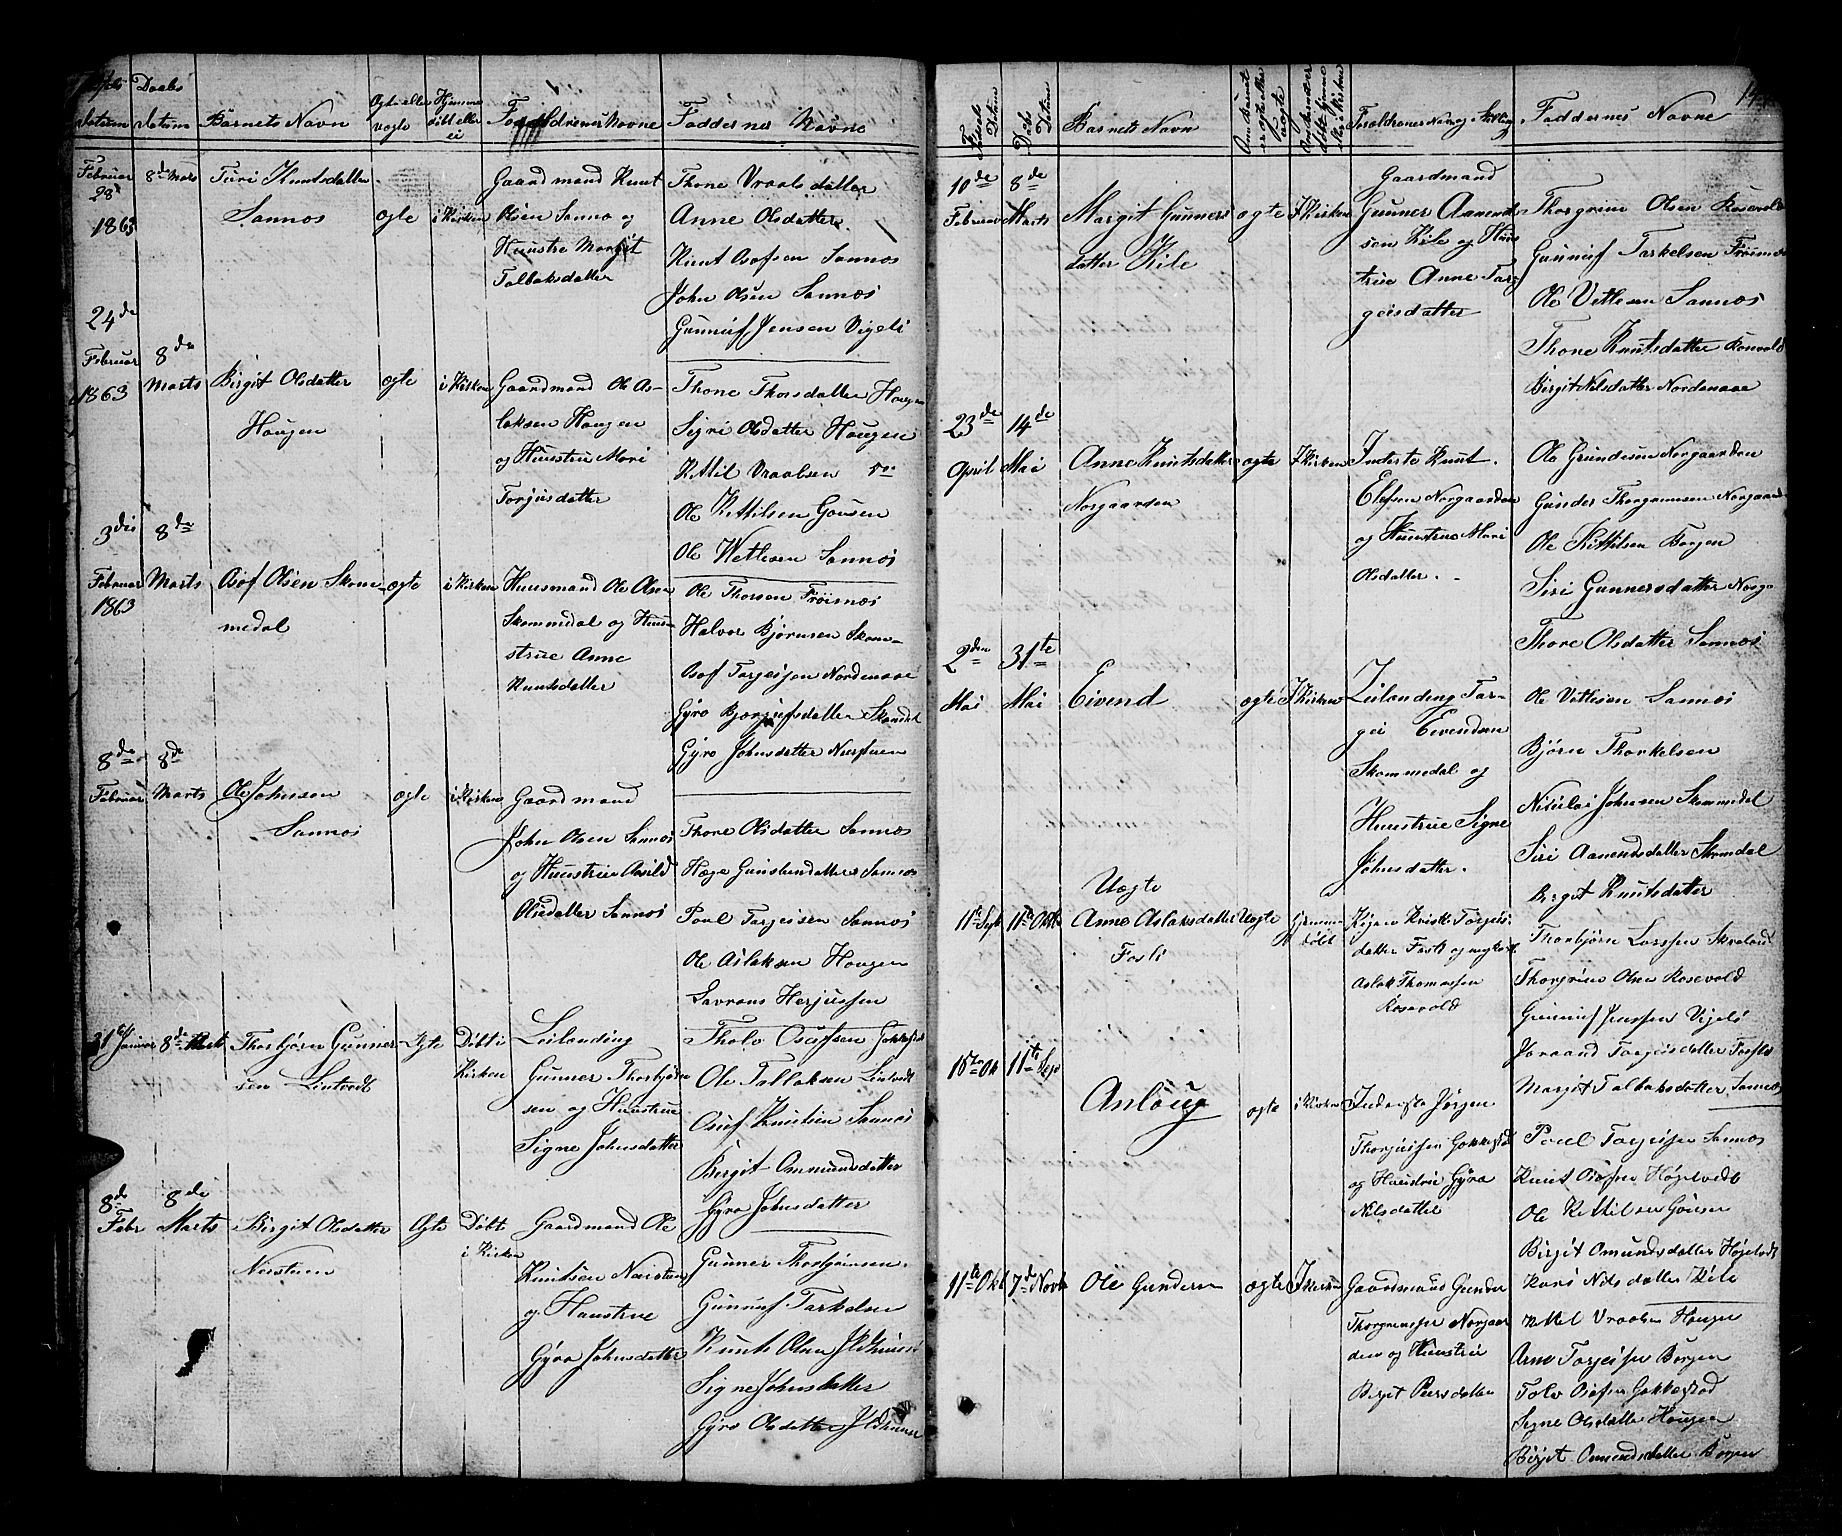 Daabs
Datum
Barnets Navn
Ogte eller
uogte
Hjemme
døbt eller
ei
Forældrenes Navne
Faddernes Navne
Februar
28
1863
8de Marts
Turi Knutsdatter
Sannos
ogte
i Kirken
Gaardmand Knut
Olsen Sannos og
Huustre Margit
Talbaksdatter
Thone Vraalsdatter
Anne Olsdatter
Knut Osofsen Sannos
John Olsen Sannos
Gunnuf Jensen Vigeli
24de
Februar
1863
8de
Marts
Birgit Olsdatter
Hougen
ogte
i Kirken
Gaardmand Ole As-
laksen Hougen
og Huustrue Mari
Torjusdatter
Thone Thorsdatter Hougen
Sigri Olsdatter Hougen
Kittil Vraalsen
Ole Kittilsen Gousen
Ole Wetlesen Sannos
3die
Februar
1863
8de
Marts
Osof Olsen Skom-
medal
ogte
i Kirken
Huusmand Ole Olsen
Skommedal og Huu-
strue Anne
Knutsdatter
Ole Thorsen Frøisnos
Halvor Bjørnsen Skom-
Osof Tarjeisen Nordenaae
Gyro Bjørgufsdatter Skomdal
Gyro Johnsdatter Neistuen
8de
Februar
8de
Marts
Ole Johnsen
Sannos
ogte
i Kirken
Gaardmand
John Olsen Sannos
og Huustrue Asvild
Olsdatter Sannos
Thore Olsdatter Sannos
Hæge Gunstendatter Sannos
Poul Targeisen Sannos
Ole Aslaksen Hougen
Lavrans Herjussen
31 Januar
8de Mart
Thorbjørn Gunner-
sen Lintvedt
Ogte
Døbt i
Kirken
Leilanding
Gunner Thorbjørn-
sen og Huustrue
Signe Johnsdatter
Tholv Osufsen
Ole Tallaksen Lintvedt
Osuf Knutsen Sannos
Birgit Omundsdatter
Gyro Johnsdatter
8de
Febr
8de
Marts
Birgit Olsdatter
Neistuen
Ogte
Døbt
i Kirken
Gaardmand Ole
Knutsen Neistuen
og Huustrue
Gyro Johnsdatter
Gunner Thorbjørnsen
Gunnuf Tarkelsen
Knut Olsen
Signe Johnsdatter
Gyro Olsdatter
Fødsels
Datum
Daabs
Datum
Barnets Navn
Om Barnet
er ogte eller
uogte
Forældrenes Navn og Stilling
Faddernes Navne
10de
Februar
8de
Marts
Margit Gunners
datter Kile
ogte
I Kirken
Gaardmand
Gunner Aamund-
sen Kile og Huus
true Anne Tar-
geisdatter
Thorgrim Olsen Rosevold
Gunnuf Tarkelsen Frøisnos
Ole Vetlesen Sannos
Thone Knutsdatter Rosvold
Birgit Nilsdatter Nordenaae
23de
April
14de
Mai
Anne Knutsdatter
Norgaarden
ogte
I Kirken
Inderste Knut
Elefsen Norgaarden
og Huustrue Mari
Olsdatter.
Ole Grundesen Norgaarden
Gunder Thorgrimsen Norgaard
Ole Kittilsen Borgen
Siri Gunnersdatter Norga
Thore Olsdatter Sannos
2den
Mai
31te
Mai
Eivend
ogte
I Kirken
Leilanding Tar-
gei Eivendsen
Skommedal og
Huustrue Signe
Johnsdatter.
Ole Vetlesen Sannos
Bjørn Thorkelsen
Nikulai Johnsen Skommedal
Siri Aamundsdatter Skomdal
Birgit Knutsdatter
Uægte
11te Sept
11te Okt
Anne Aslaksdatter
Fosli
Uogte
hjemme
døbt
Pigen
Aslak Thomassen
Rosevold
Thorbjørn Larssen
Thorgrim Olsen Rosevold
Gunnuf Jenssen Vigeli
Joraand Torgeisdatter Fosli
Margit Talbaksdatter Sannos
Anlaug
ogte
i Kirken
Inderste Jørgen
Thorgiussen
og Huustrue Gyro
Nilsdatter
Poul Torjeisen Sannos
Knut Osofsen Høgetvedt
Ole Kittilsen Gousen
Birgit Omundsdatter Høgetvedt
Kari Nilsdatter Kile
11te Okt
7de Novb
Ole Gundersen
ogte
I Kirken
Gaardmand Gunder
Thorgrimssen Norgaar
den og Huustrue
Birgit Peersdatter
Kittel Vraalsen Hougen
Arne Torjeisen Borgen
Tolv Osofsen
Signe Olsdatter Hougen
Birgit Omundsdatter Borgen